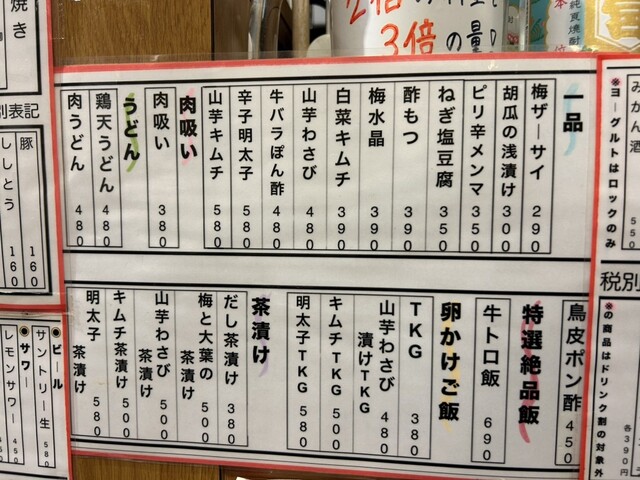 2倍
3倍の量
本
純良焼酎
一品
梅ザーサイ 290
胡瓜の浅漬け 300
ピリ辛メンマ 350
ねぎ塩豆腐 350
酢もつ 390
梅水晶 390
白菜キムチ 390
山芋わさび 480
牛バラぽん酢 480
辛子明太子 580
山芋キムチ 580
肉吸い
肉吸い 380
うどん
鶏天うどん 480
肉うどん 480
鳥皮ポン酢 450
特選絶品飯
牛トロ飯 690
卵かけご飯
TKG 380
山芋わさび漬けTKG 480
キムチTKG 500
明太子TKG 580
茶漬け
だし茶漬け 380
梅と大葉の茶漬け 500
山芋わさび茶漬け 500
キムチ茶漬け 500
明太子茶漬け 580
みかん酒 550
※ヨーグルトはロックのみ
税別
※の商品はドリンク割の対象外
各390円
焼き
別表記
豚 160
ししとう 160
◉ビール
サントリー生 580
◉サワー
レモンサワー 450